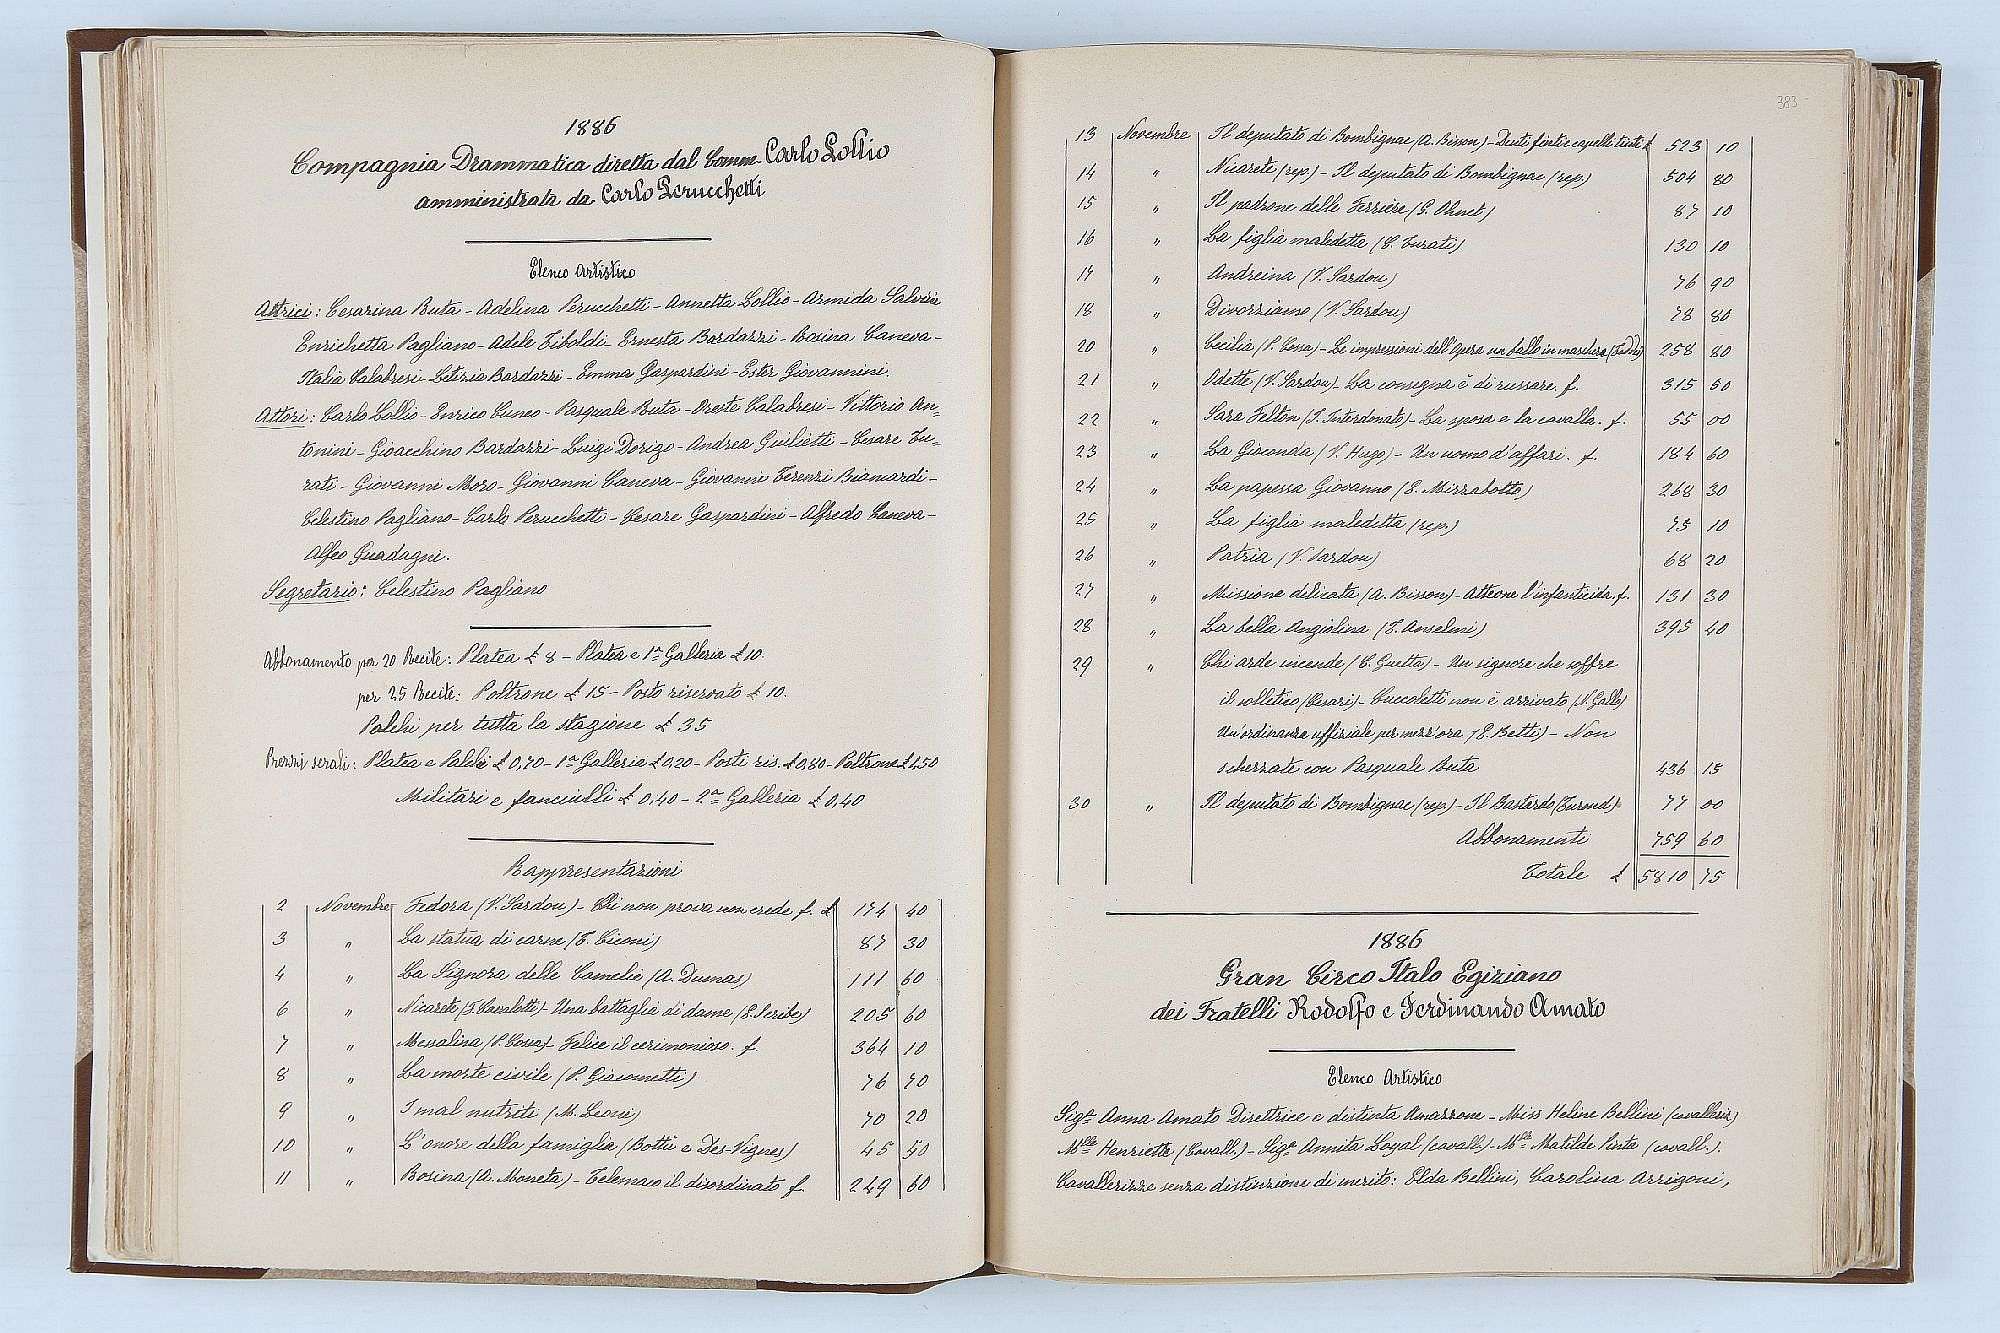 1886
Compagnia Drammatica diretta dal Comm. Carlo Lollio
amministrata da Carlo Perucchetti
Elenco Artistico
Attrici: Cesarina Buta - Adelina Perucchetti - Annetta Lollio - Armida Salvini
Enrichetta Pagliano - Adele Tiboldi - Ernesta Bardazzi - Rosina Caneva -
Italia Calabresi - Letizia Bardazzi - Emma Gaspardini - Ester Giovannini.
Attori: Carlo Lollio - Enrico Cuneo - Pasquale Buta - Oreste Calabresi - Vittorio An=
tonini - Gioacchino Bardazzi - Luigi Dorigo - Andrea Giulietti - Cesare Tu-
rati - Giovanni Moro - Giovanni Caneva - Giovanni Terenzi Biamardi -
Celestino Pagliano - Carlo Perucchetti - Cesare Gaspardini - Alfredo Caneva -
Alfeo Guadagni.
Segretario: Celestino Pagliano
Abbonamento per 20 Recite: Platea £ 8 - Platea e 1ª Galleria £ 10.
per 25 Recite: Poltrone £ 15 - Posto riservato £ 10.
Palchi per tutta la stagione £ 35
Prezzi serali: Platea e Palchi £ 0,70 - 1ª Galleria £ 0,20 - Posti ris. £ 0,80 - Poltrone £ 1,50
Militari e fanciulli £ 0,40 - 2ª Galleria £ 0,40
Rappresentazioni
2 Novembre Fedora (V. Sardou) - Chi non prova non crede f. £ 174 40
3 " La statua di carne (T. Ciconi) 87 30
4 " La Signora delle Camelie (A. Dumas) 111 60
6 " Nicarete (F. Cavalotti) - Una battaglia di dame (E. Scribe) 205 60
7 " Messalina (P. Cossa) - Felice il cerimonioso. f. 364 10
8 " La morte civile (P. Giacometti) 76 70
9 " I mal nutriti (M. Leoni) 70 20
10 " L'onore della famiglia (Botti e Des-Vignes) 45 50
11 " Rosina (A. Moneta) - Telemaco il disordinato f. 249 60
383
13 Novembre Il deputato di Bombignac (A. Bisson) - Denti finti e capelli tinti £ 523 10
14 " Nicarete (rep.) - Il deputato di Bombignac (rep.) 504 80
15 " Il padrone delle Ferriere (G. Ohnet) 87 10
16 " La figlia maledetta (C. Turati) 130 10
17 " Andreina (V. Sardou) 76 90
18 " Divorziamo (V. Sardou) 78 80
20 " Cecilia (P. Cossa) - Le impressioni dell'opera un ballo in maschera 258 80
21 " Odette (V. Sardou) - La consegna è di russare. f. 315 50
22 " Sara Felton (S. Interdonato) - La sposa e la cavalla. f. 55 00
23 " La Gioconda (V. Hugo) - Un uomo d'affari. f. 184 60
24 " La papessa Giovanna (E. Mezzabotta) 268 30
25 " La figlia maledetta (rep.) 75 10
26 " Patria (V. Sardou) 68 20
27 " Missione delicata (A. Bisson) - Atteone l'infanticida. f. 131 30
28 " La bella Angiolina (E. Anselmi) 395 40
29 " Chi arde incende (C. Guetta) - Un signore che soffre
il solletico (Cesari) - Cuccoletti non è arrivato (N. Gallo)
Un'ordinanza uffiziale per mezz'ora (E. Betti) - Non
scherzate con Pasquale Buta 436 15
30 " Il deputato di Bombignac (rep.) - Il Bastardo (Touroud) 77 00
Abbonamenti 759 60
Totale £ 5810 75
1886
Gran Circo Italo Egiziano
dei Fratelli Rodolfo e Ferdinando Amato
Elenco Artistico
Sigª Anna Amato Direttrice e distinta Amazzone - Miss Heline Bellini (cavalleriz.)
Mlle Henriette (Cavall.) - Sigª Annita Loyal (cavall.) - Mlle Matilde Pinta (cavall.).
Cavallerizze senza distinzione di merito: Elda Bellini, Carolina Arrigoni,